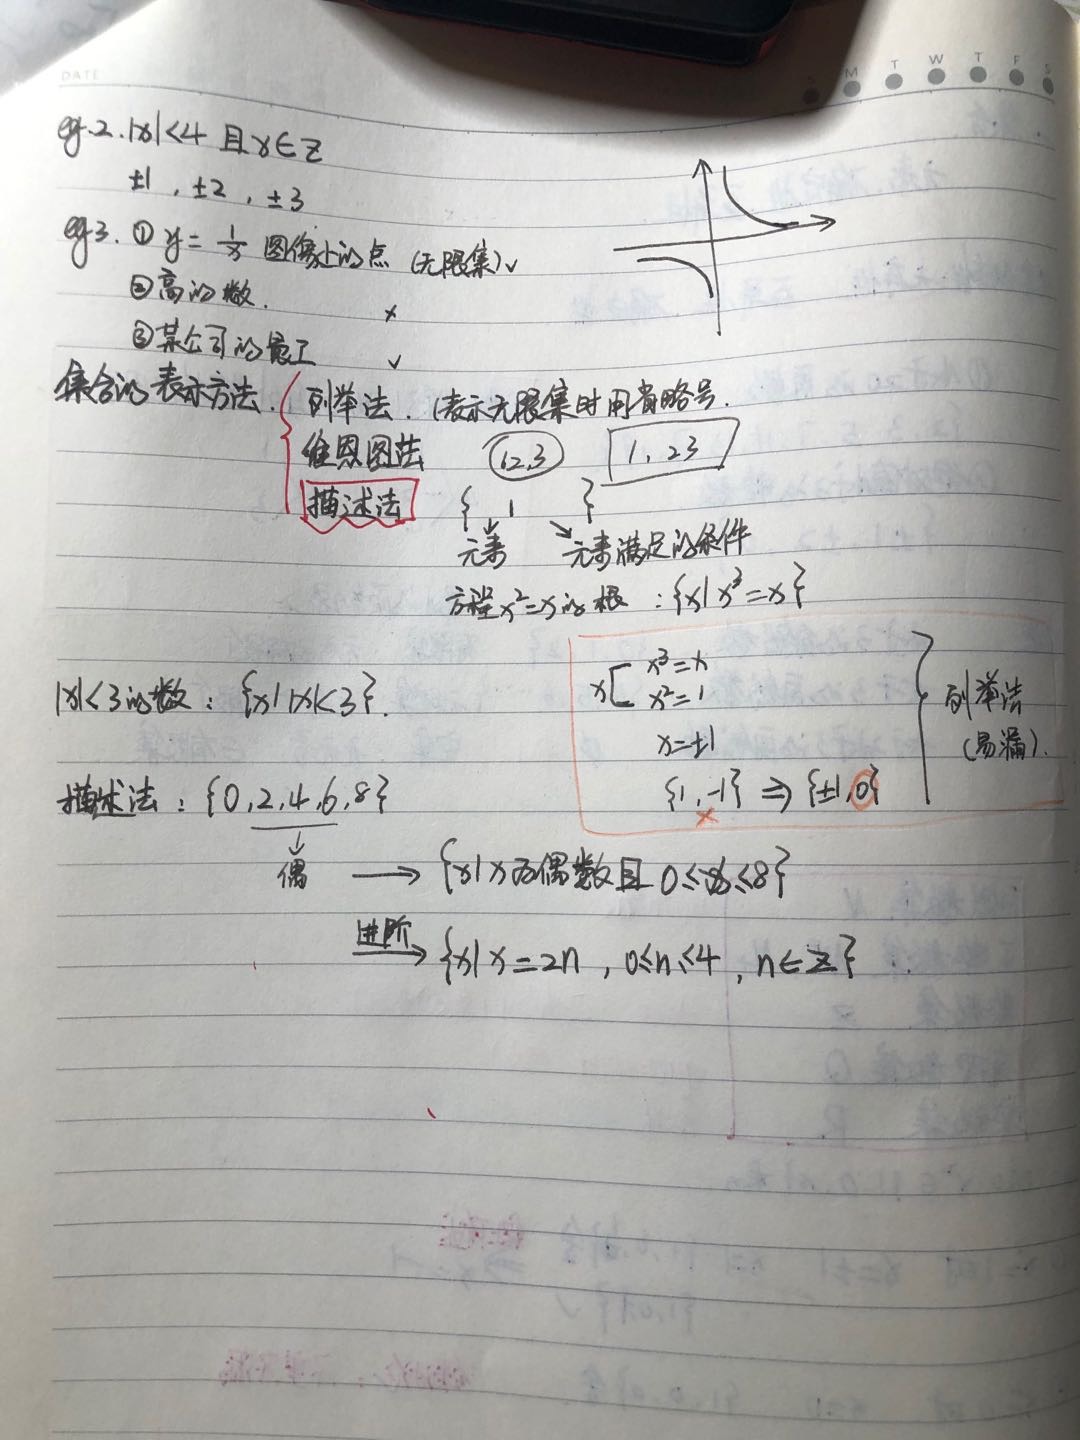 DATE
M T W T F S
eg.2. |x|<4 且x∈Z
±1, ±2, ±3
eg3. ① y = 1/x 图像上的点 (无限集) √
② 高的数. ×
③ 某公司的员工 √
集合的表示方法. 列举法. (表示无限集时用省略号.
维恩图法 1,2,3 1, 2 3
描述法 { | }
元素 元素满足的条件
方程x²=x的根 : {x| x³=x}
x³=x
x²=1
x=±1
{1, -1} ⇒ {±1, 0}
×
列举法
(易漏).
|x|<3的数 : {x| |x|<3}.
描述法 : {0, 2, 4, 6, 8}
↓
偶 → {x| x为偶数且 0≤x≤8}
进阶 → {x| x=2n , 0≤n≤4 , n∈Z}